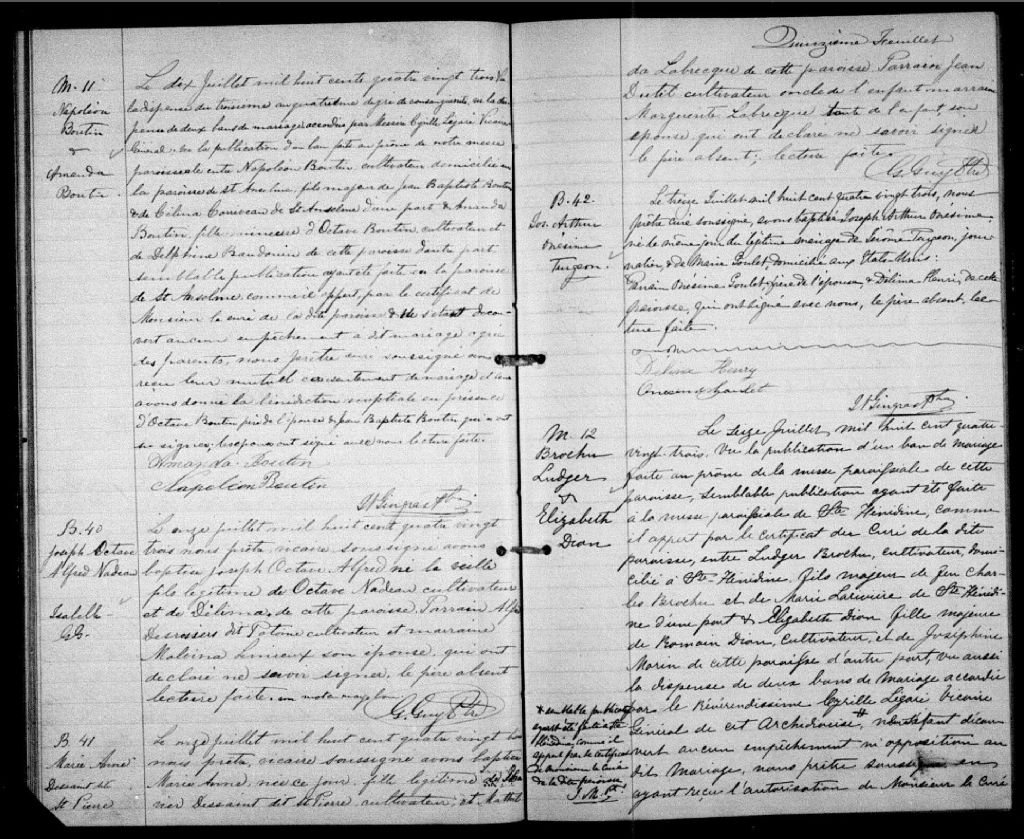 M. 11
Napoléon
Boutin
&
Amanda
Boutin
Le dix Juillet mil huit cents quatre vingt trois, Vu
la dispense du troisième au quatrième degré de consanguinité, vu la dis-
pense de deux bans de mariage accordée par Messire Cyrille Légaré Vicaire
Général, vu la publication d'un ban faite au prône de notre messe
paroissiale entre Napoléon Boutin cultivateur domicilié en
la paroisse de St Anselme, fils majeur de Jean Baptiste Boutin
& de Célina Corriveau de St Anselme d'une part & Amanda
Boutin, fille mineure d'Octave Boutin cultivateur et
de Delphine Baudouin de cette paroisse d'autre part
semblable publication ayant été faite en la paroisse
de St Anselme, comme il appert, par le certificat de
Monsieur le curé de la dite paroisse & ne s'étant décou-
vert aucun empêchement au dit mariage,
des parents, nous prêtre curé soussigné avons
reçu leur mutuel consentement de mariage et leur
avons donné la bénédiction nuptiale en présence
d'Octave Boutin père de l'épouse & Jean Baptiste Boutin qui n'ont
su signer, les époux ont signé avec nous lecture faite.
Amanda Boutin
Napoléon Boutin
N Gingras Ptre
B. 40
Joseph Octave
Alfred Nadeau
Le onze juillet mil huit cent quatre vingt
trois nous prêtre, vicaire soussigné avons
baptisé Joseph Octave Alfred né la veille
fils légitime de Octave Nadeau cultivateur
et de Dilima de cette paroisse. Parrain
Desrosiers dit cultivateur et marraine
Malvina Lemieux son épouse, qui ont
déclaré ne savoir signer, le père absent
lecture faite.
G. Guy Ptre
B. 41
Marie Anne
Dessaint dit
St Pierre
Le onze juillet mil huit cent quatre vingt trois
nous prêtre, vicaire soussigné avons baptisé
Marie Anne, née ce jour, fille légitime de
Dessaint dit St Pierre, cultivateur, et Mathil
Quinzième Feuillet
da Labrecque de cette paroisse Parrain Jean
Dutil cultivateur oncle de l'enfant marraine
Marguerite Labrecque tante de l'enfant, son
épouse qui ont déclaré ne savoir signer
le père absent; lecture faite.
G. Guy Ptre
B. 42.
Jos. Arthur
Onésime
Turgeon.
Le treize Juillet mil huit cent quatre vingt trois, nous
prêtre curé soussigné, avons baptisé Joseph Arthur Onésime,
né le même jour du légitime mariage de Turgeon, jour-
nalier, & de Marie Poulet, domicilié aux Etats-Unis.
Parrain Onésime Poulet, frère de l'épouse, & Délima Henri, de cette
paroisse, qui ont signé avec nous, le père absent, lec-
ture faite.
Délina Henry
N Gingras Ptre
M. 12
Brochu
Ludger
&
Elizabeth
Dion
Le seize Juillet, mil huit cent quatre-
vingt-trois. Vu la publication d'un ban de mariage
faite au prône de la messe paroissiale de cette
paroisse, semblable publication ayant été faite
à la messe paroissiale de Ste Hénédine, comme
il appert par le certificat du Curé de la dite
paroisse, entre Ludger Brochu, cultivateur, domi-
cilié à Ste Hénédine. fils majeur de feu Char-
les Brochu et de Marie Larivière de Ste Hénédi-
ne d'une part & Elizabeth Dion fille majeure
de Romain Dion, cultivateur, et de Josephine
Morin de cette paroisse d'autre part, vu aussi
la dispense de deux bans de mariage accordée
par le Révérendissime Cyrille Légaré Vicaire
Général de cet Archidiocèse #, ne s'étant décou-
vert aucun empêchement ni opposition au
dit Mariage, nous prêtre soussigné en
ayant reçu l'autorisation de Monsieur le Curé
# semblable publication
ayant été faite à Ste
Hénédine, comme il
appert par le certificat
de Monsieur le Curé
de la dite paroisse